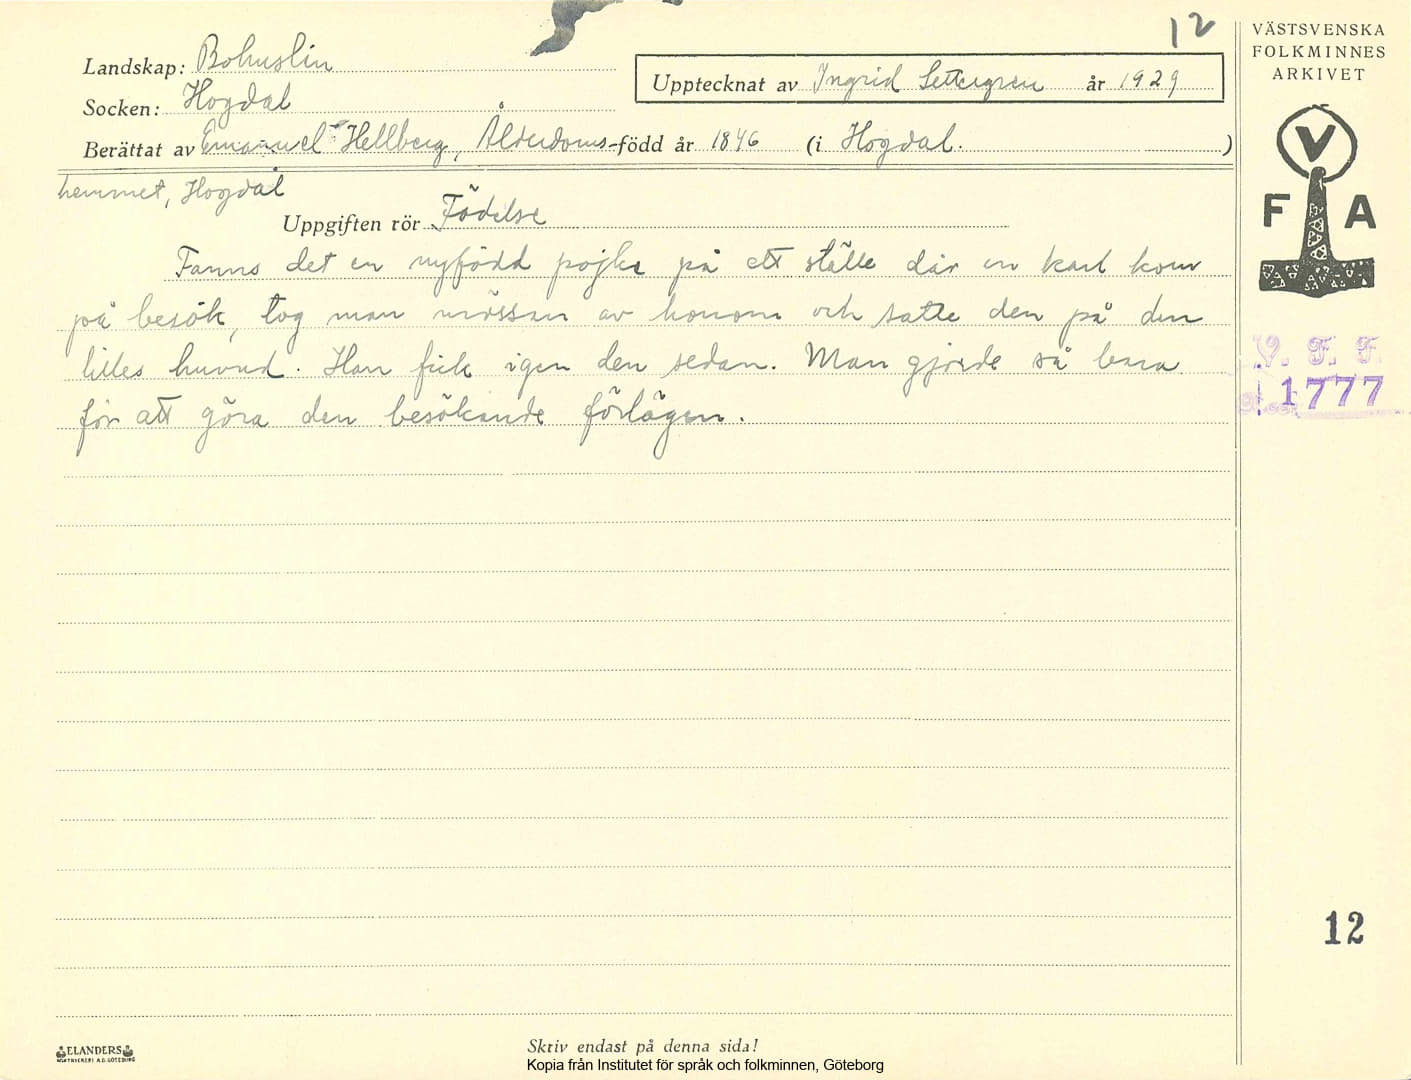 12
Landskap: Bohuslän
Socken: Hogdal
Upptecknat av Ingrid Settergren år 1929
Berättat av Emanuel Hellberg, Ålderdoms- född år 1846 (i Hogdal. )
hemmet, Hogdal
Uppgiften rör Födelse
Fanns det en nyfödd pojke på ett ställe där en karl kom
på besök, tog man mössan av honom och satte den på den
lilles huvud. Han fick igen den sedan. Man gjorde så bara
för att göra den besökande förlägen.
VÄSTSVENSKA
FOLKMINNES
ARKIVET
V
F A
V. F. F.
1777
12
ELANDERS
Skriv endast på denna sida!
Kopia från Institutet för språk och folkminnen, Göteborg